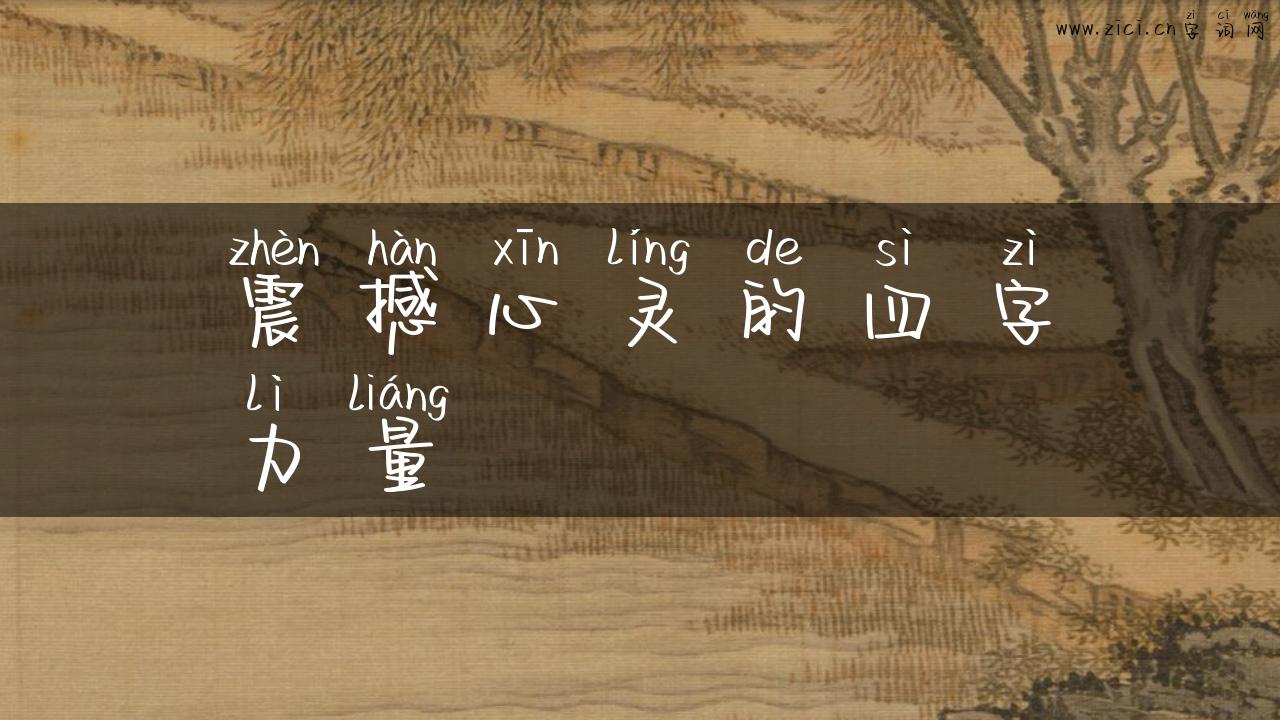 zì cí wǎng
www.zici.cn字词网
zhèn hàn xīn líng de sì zì
震撼心灵的四字
lì liáng
力量